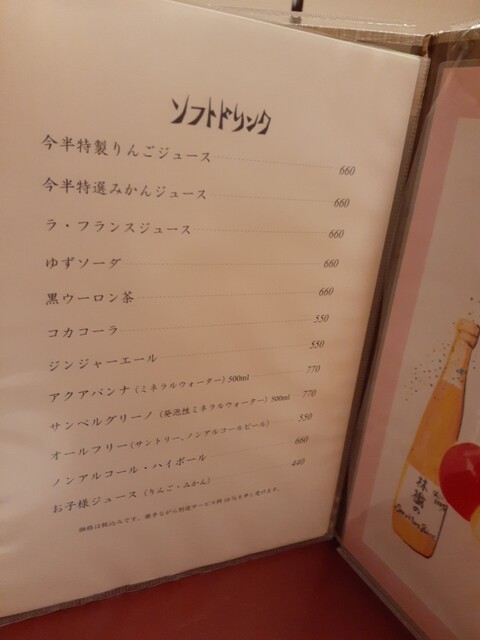 ソフトドリンク
今半特製りんごジュース 660
今半特選みかんジュース 660
ラ・フランスジュース 660
ゆずソーダ 660
黒ウーロン茶 660
コカコーラ 550
ジンジャーエール 550
アクアパンナ(ミネラルウォーター)500ml 770
サンペルグリーノ(発泡性ミネラルウォーター)500ml 770
オールフリー(サントリー、ノンアルコールビール) 550
ノンアルコール・ハイボール 660
お子様ジュース(りんご・みかん) 440
価格は税込みです。勝手ながら別途サービス料10%を申し受けます。
林檎の